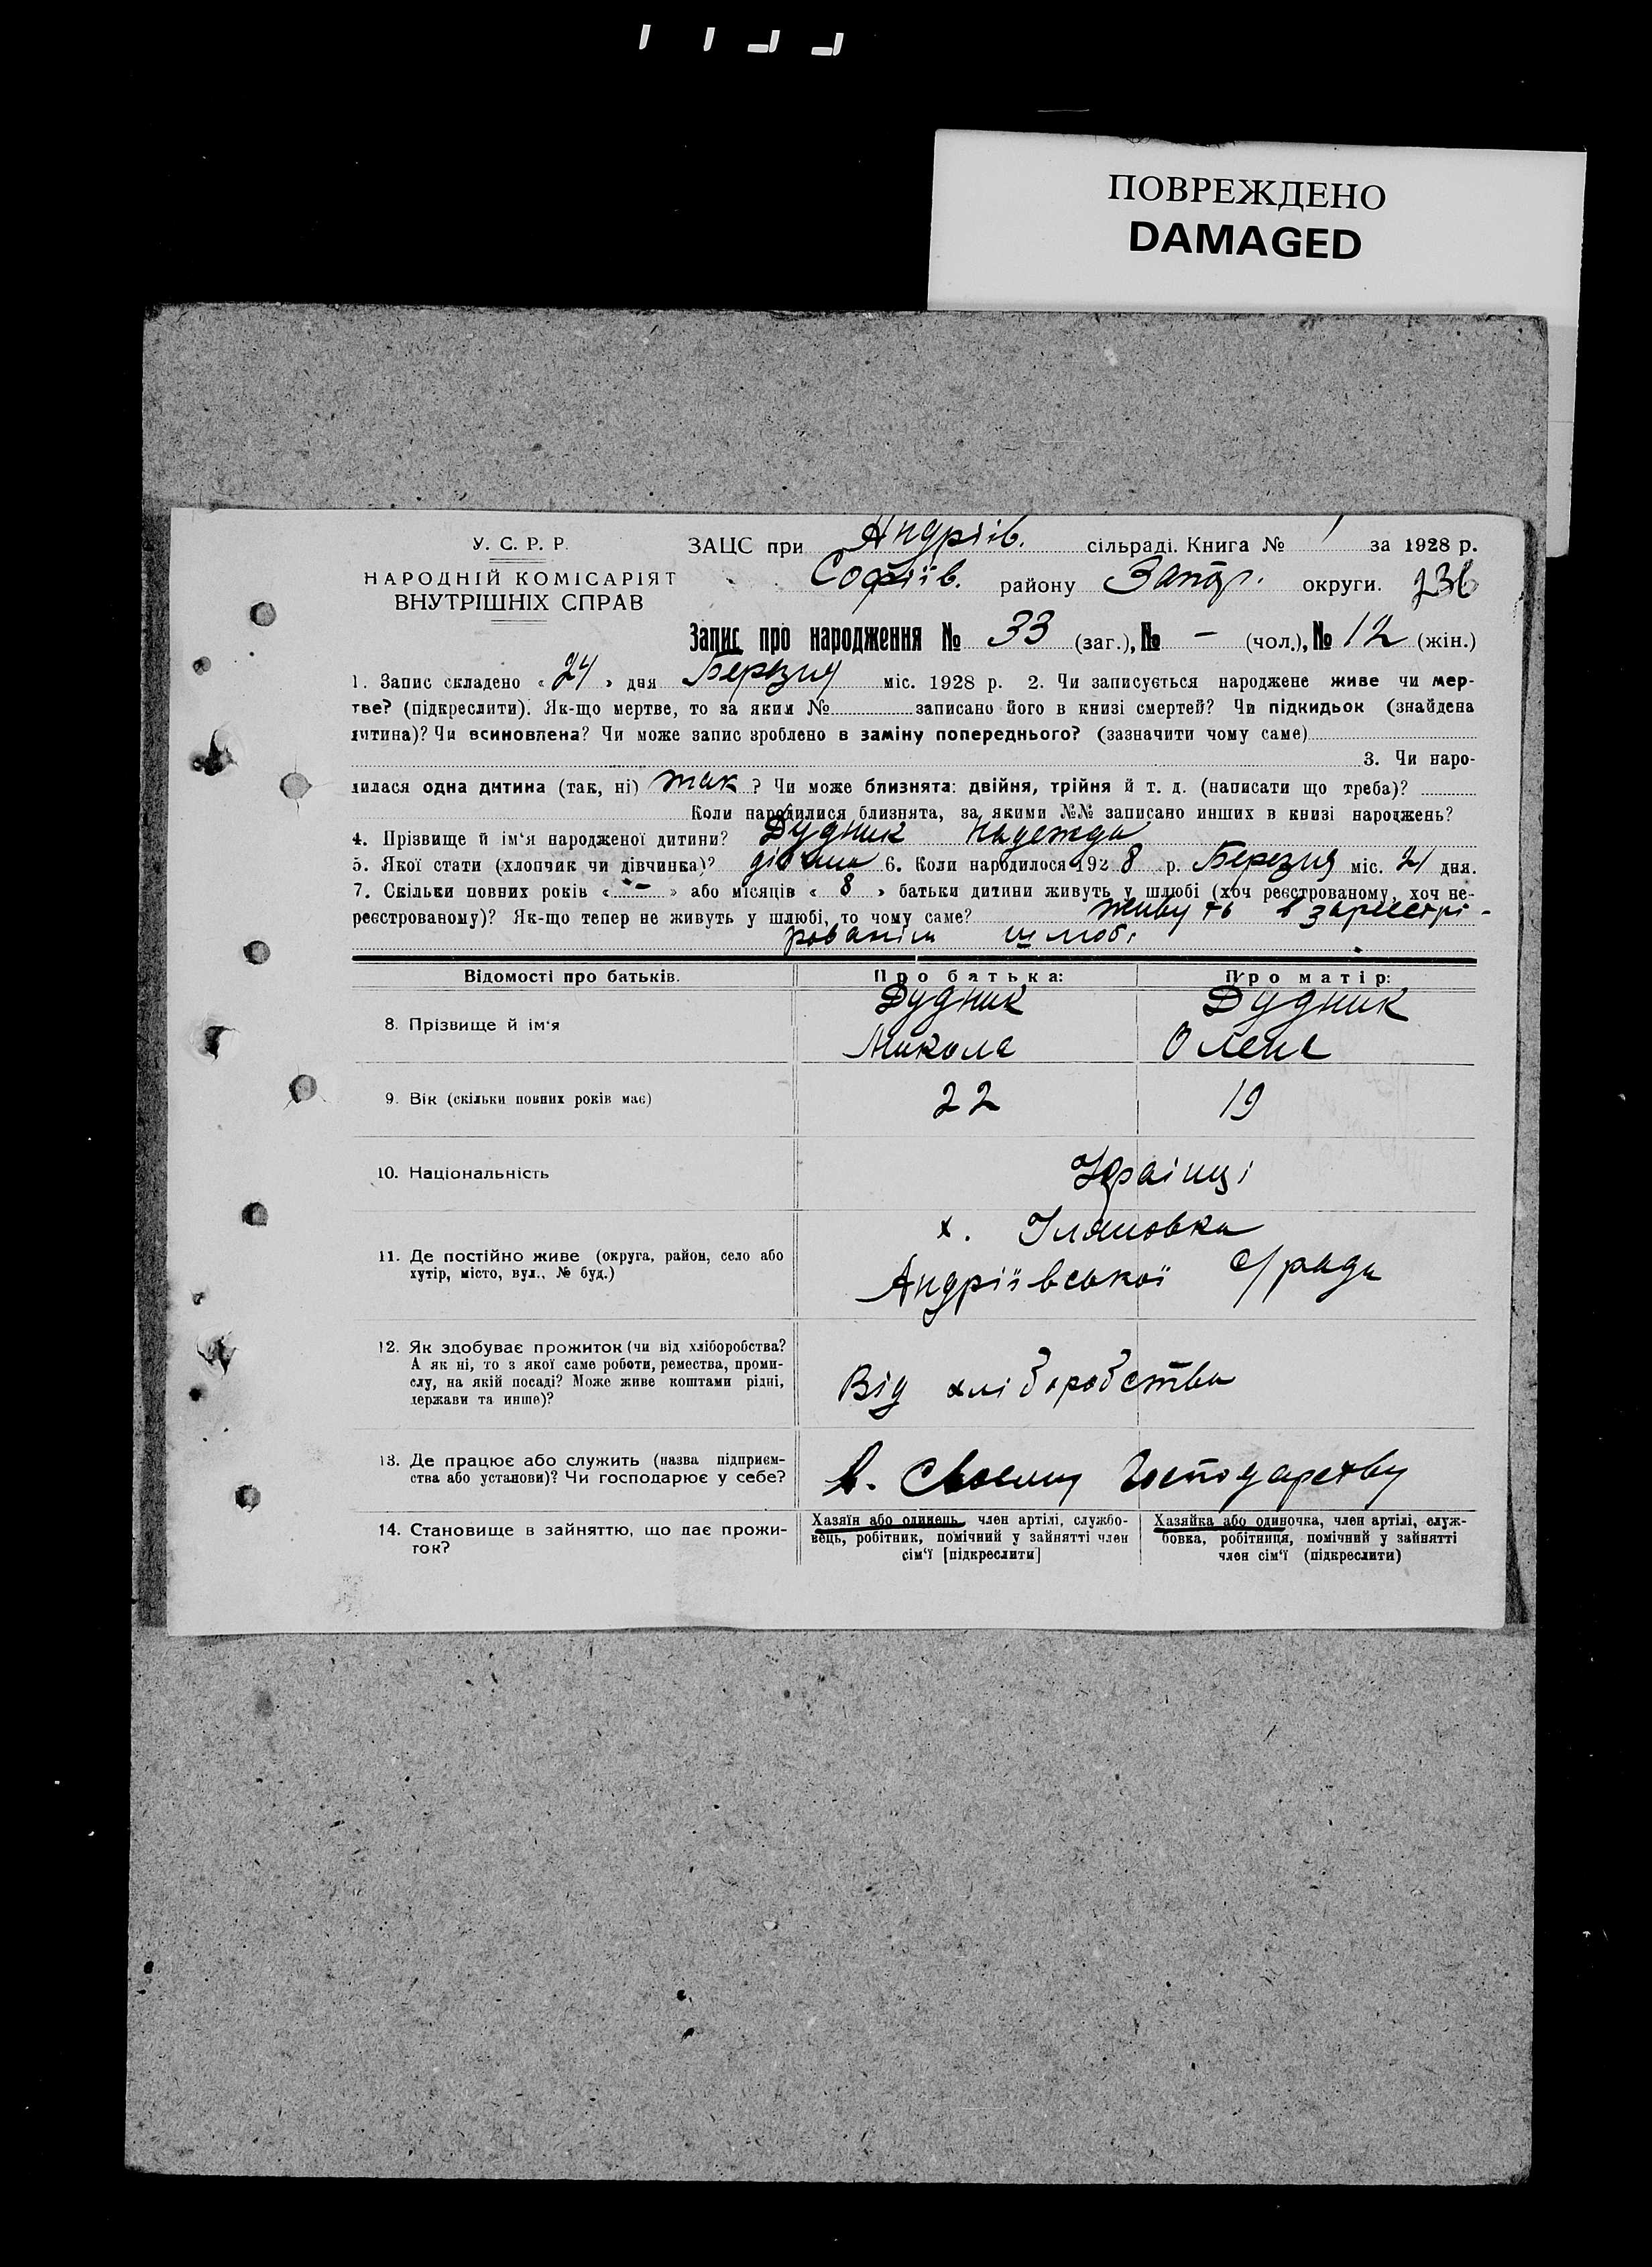 ПОВРЕЖДЕНО
DAMAGED
У. С. Р. Р.
НАРОДНІЙ КОМІСАРІЯТ
ВНУТРІШНІХ СПРАВ
ЗАЦС при Андріїв. сільраді. Книга № 1 за 1928 р.
Софіїв. району Запор. округи. 236
Запис про народження № 33 (заг.), № – (чол.), № 12 (жін.)
1. Запис складено « 24 » дня Березня міс. 1928 р. 2. Чи записується народжене живе чи мер-
тве? (підкреслити). Як-що мертве, то за яким № записано його в книзі смертей? Чи підкидьок (знайдена
дитина)? Чи всиновлена? Чи може запис зроблено в заміну попереднього? (зазначити чому саме)
3. Чи наро-
дилася одна дитина (так, ні) так ? Чи може близнята: двійня, трійня й т. д. (написати що треба)?
Коли народилися близнята, за якими №№ записано инших в книзі народжень?
4. Прізвище й ім'я народженої дитини? Дудник Надежда
5. Якої стати (хлопчик чи дівчинка)? дівчина 6. Коли народилося 1928 р. Березня міс. 21 дня.
7. Скільки повних років « – » або місяців « 8 » батьки дитини живуть у шлюбі (хоч реєстрованому, хоч не-
реєстрованому)? Як-що тепер не живуть у шлюбі, то чому саме? живуть в зареєстрі-
рованім шлюбі
Відомості про батьків. Про батька: Про матір:
8. Прізвище й ім'я Дудник Микола Дудник Олена
9. Вік (скільки повних років має) 22 19
10. Національність Українці
11. Де постійно живе (округа, район, село або
хутір, місто, вул., № буд.)
х. Уляновка
Андріївської с/ради
12. Як здобуває прожиток (чи від хліборобства?
А як ні, то з якої саме роботи, ремества, проми-
слу, на якій посаді? Може живе коштами рідні,
держави та инше)?
Від хліборобства
13. Де працює або служить (назва підприєм-
ства або установи)? Чи господарює у себе?
В. своему господарству
14. Становище в зайняттю, що дає прожи-
ток?
Хазяїн або одинець, член артілі, службо-
вець, робітник, помічний у зайнятті член
сім'ї [підкреслити]
Хазяйка або одиночка, член артілі, служ-
бовка, робітниця, помічний у зайнятті
член сім'ї (підкреслити)